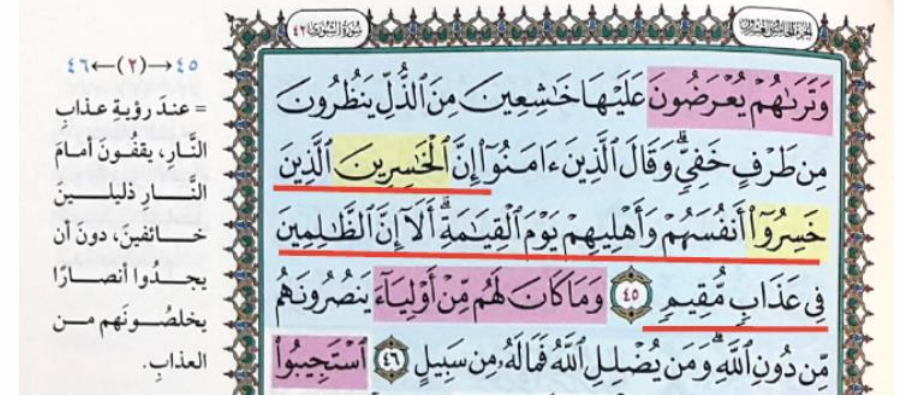 الجزء الخامس والعشرون
سُورَةُ الشُّورَىٰ ٤٢
وَتَرَىٰهُمْ يُعْرَضُونَ عَلَيْهَا خَٰشِعِينَ مِنَ ٱلذُّلِّ يَنظُرُونَ
مِن طَرْفٍ خَفِيٍّۗ وَقَالَ ٱلَّذِينَ ءَامَنُوٓا۟ إِنَّ ٱلْخَٰسِرِينَ ٱلَّذِينَ
خَسِرُوٓا۟ أَنفُسَهُمْ وَأَهْلِيهِمْ يَوْمَ ٱلْقِيَٰمَةِۗ أَلَآ إِنَّ ٱلظَّٰلِمِينَ
فِى عَذَابٍ مُّقِيمٍ ٤٥ وَمَا كَانَ لَهُم مِّنْ أَوْلِيَآءَ يَنصُرُونَهُم
مِّن دُونِ ٱللَّهِۗ وَمَن يُضْلِلِ ٱللَّهُ فَمَا لَهُۥ مِن سَبِيلٍ ٤٦ ٱسْتَجِيبُوا۟
٤٥→(٢)←٤٦
= عندَ رؤيةِ عذابِ
النَّارِ، يقفُونَ أمامَ
النَّارِ ذليلينَ
خائفينَ، دونَ أن
يجدُوا أنصارًا
يخلصُونَهم من
العذابِ.